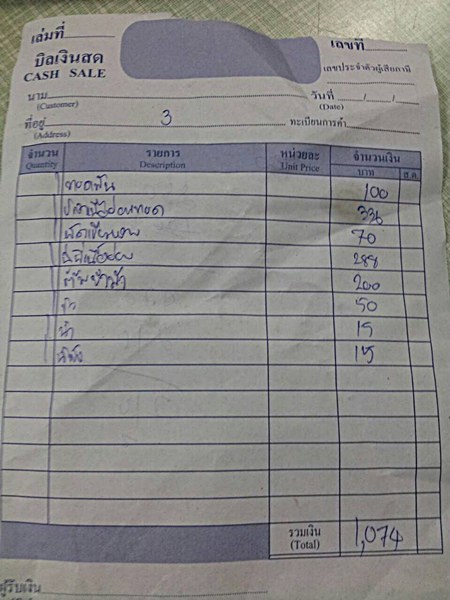 เล่มที่
เลขที่
บิลเงินสด
CASH SALE
เลขประจำตัวผู้เสียภาษี
นาม
(Customer)
วันที่ / /
(Date)
ที่อยู่ 3
(Address)
ทะเบียนการค้า
จำนวน รายการ หน่วยละ จำนวนเงิน
Quantity Description Unit Price บาท ส.ต.
ทอดมัน 100
ปลาเนื้ออ่อนทอด 336
70
ฉู่ฉี่เนื้ออ่อน 288
200
ข้าว 50
น้ำ 15
น้ำแข็ง 15
รวมเงิน 1,074
(Total)
ผู้รับเงิน